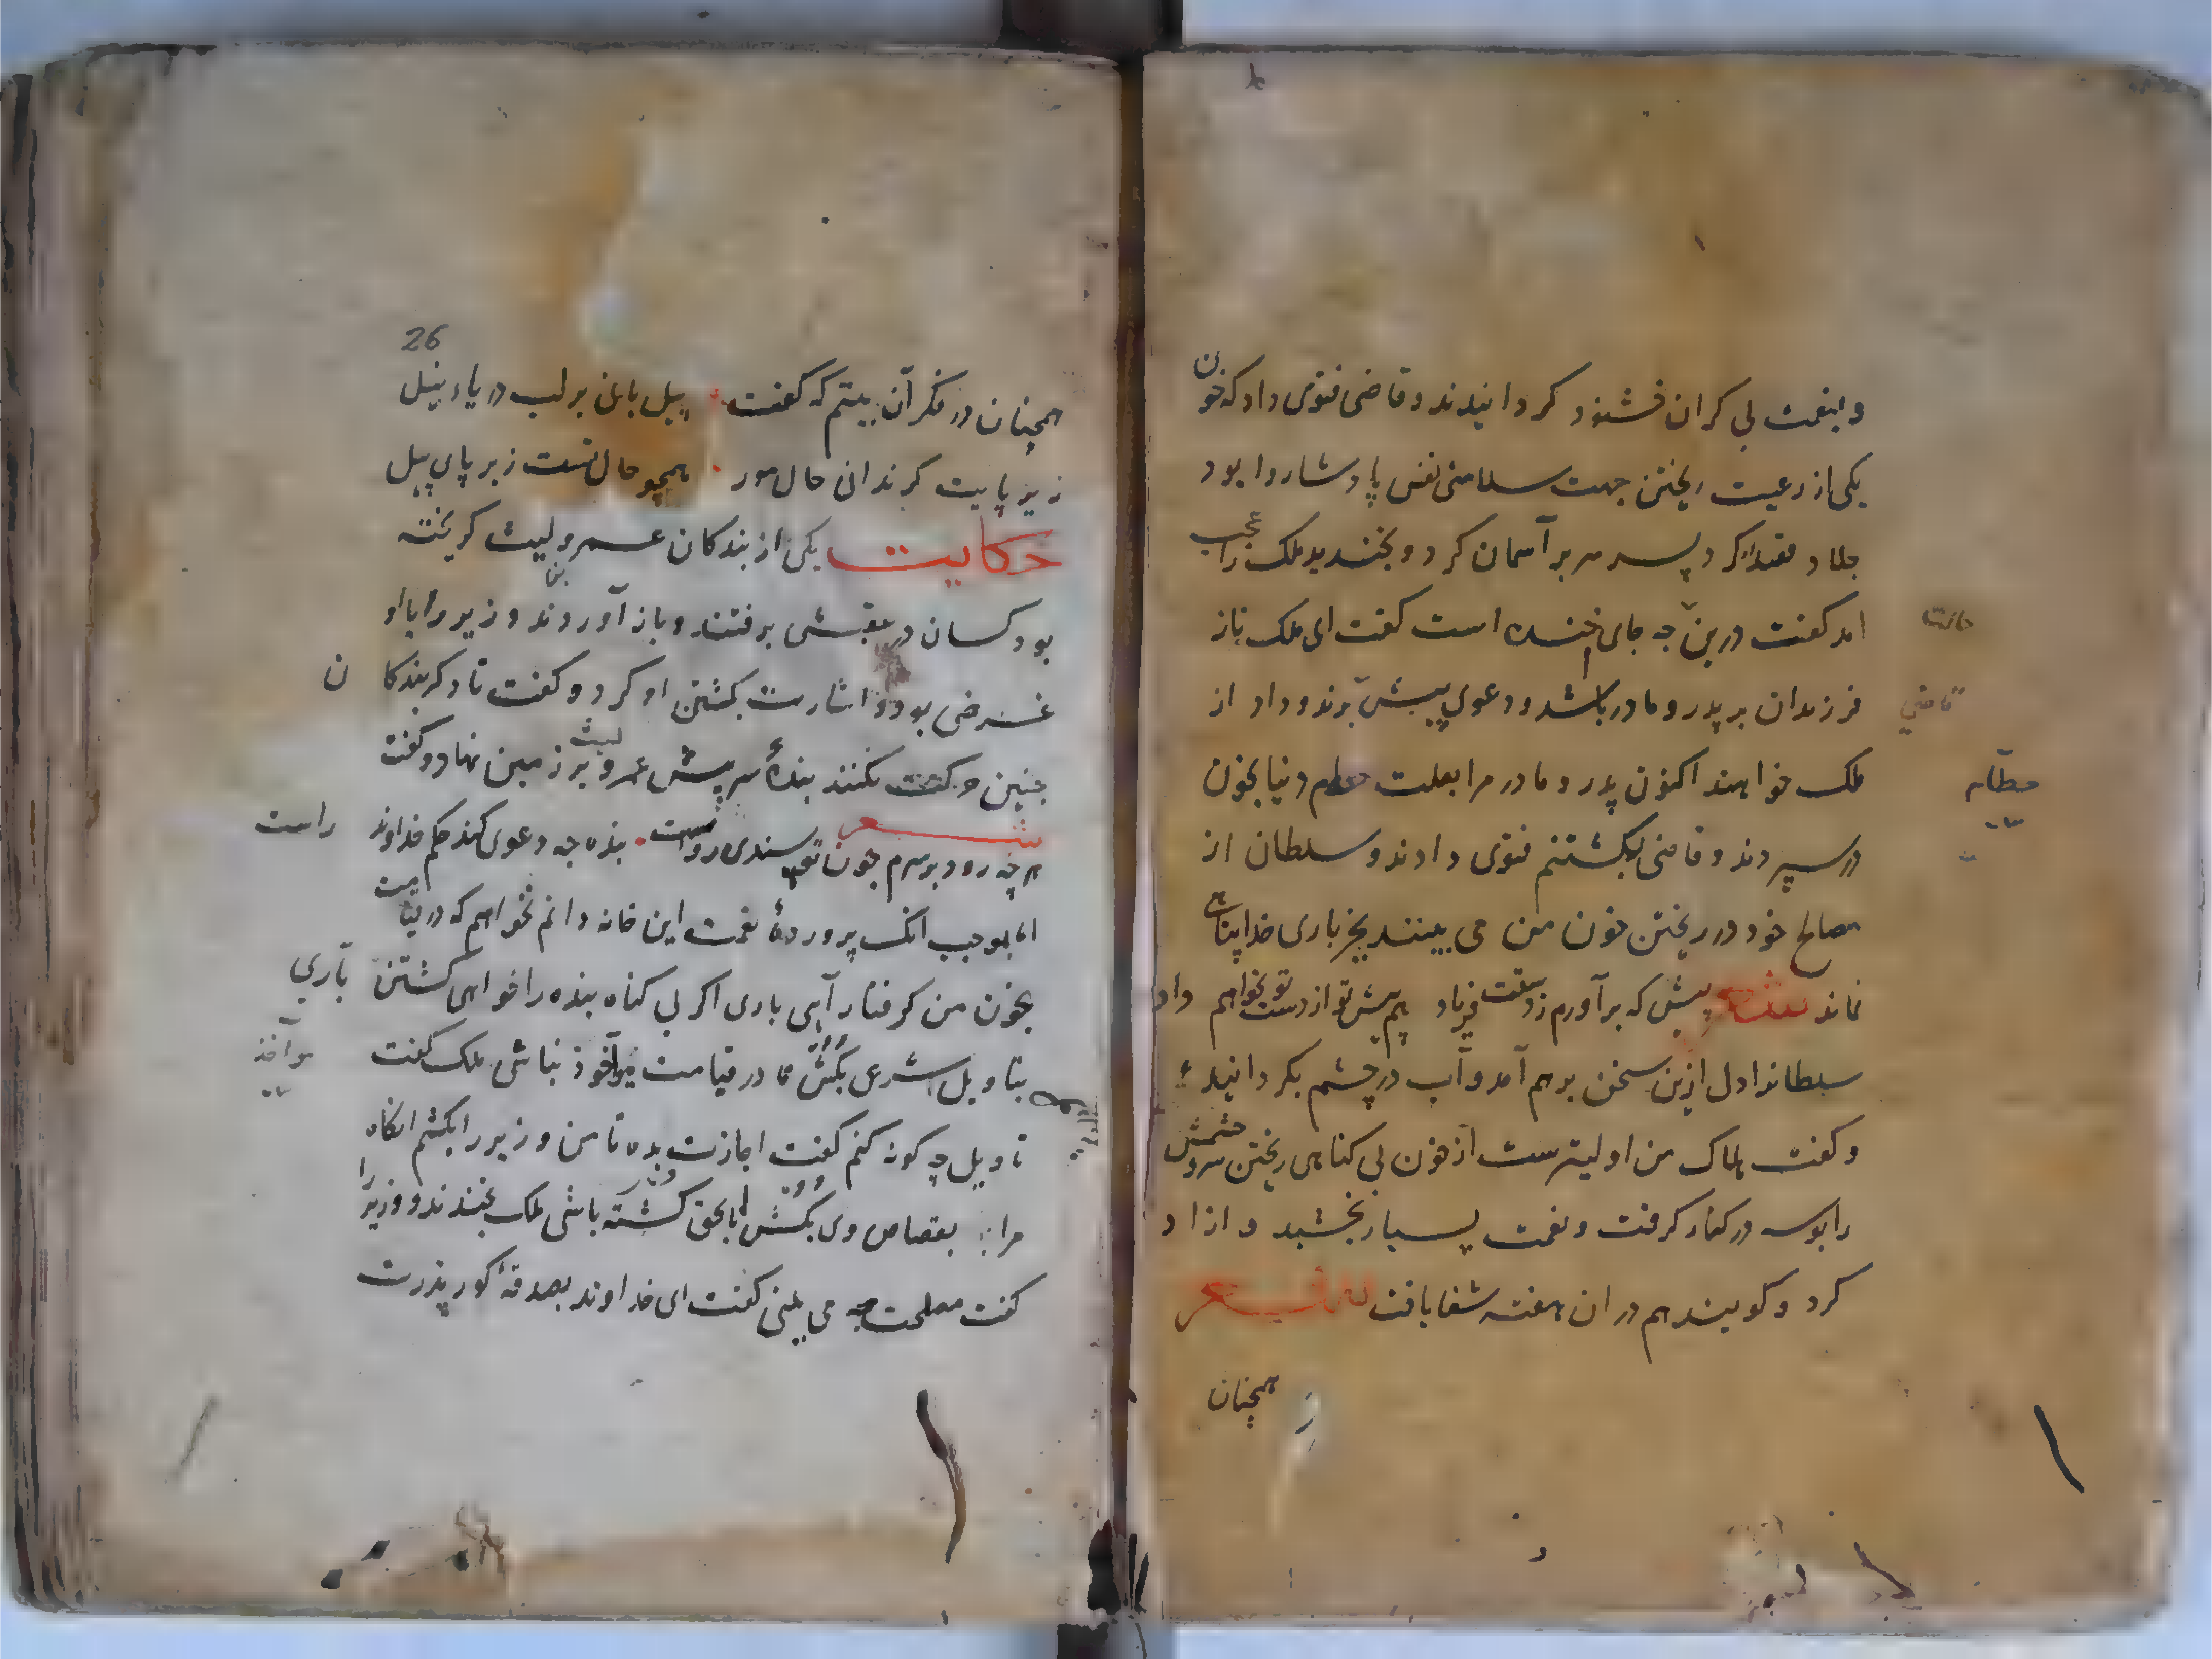 و بنعمت بی کران خشنود کردانیدند و قاضی فتوی داد که خون
یکی از رعیت ریختن جهت سلامتی نفس پادشاه روا بود
جلاد قصد کرد پسر سر بر آسمان کرد و بخندید ملک را عجب
امد کفت درین چه جای خنده است کفت ای ملک ناز
حالت
فرزندان بر پدر و مادر باشد و دعوی پیش برند و داد از
قاضي
ملک خواهند اکنون پدر و مادر مرا بعلت حطام دنیا بخون
حطام
در سپردند و قاضی بکشتنم فتوی دادند و سلطان از
مصالح خود در ریختن خون من می بینند بجز باری خدا پناهی
نماند شعر پیش که برآورم ز دستت فریاد هم پیش تو از دست تو میخواهم داد
سلطانرا دل ازین سخن برهم آمد و آب در چشم بکردانید
و کفت هلاک من اولیترست از خون بی کناهی ریختن سر و چشمش
را بوسه در کنار کرفت و نعمت بسیار بخشید و ازاد
کرد و کویند هم دران هفته شفا یافت شعر
همچنان
26
همچنان در فکر آن بیتم که کفت پیل بانی بر لب دریاء نیل
زیر پایت کر ندانی حال مور همچو حال تست زیر پای پیل
حکایت یکی از بندکان عمرو لیث کریخته
بود کسان در عقبش برفتند و باز آوردند وزیر را با او
غرضی بود و اشارت بکشتن او کرد و کفت تا دکر بندکان
چنین حرکت نکنند بنده سر پیش عمرو لیث بر زمین نهاد و کفت
شعر
هرچه رود بر سرم چون تو پسندی رواست بنده چه دعوی کند حکم خداوند راست
اما بموجب انک پرورده نعمت این خانه دانم نخواهم که در قیامت
بخون من کرفتار آیی باری اکر بی کناه بنده را خواهی کشتن باري
بتاویل شرعی بکش تا در قیامت مواخوذ نباشی ملک کفت
مواخذ
تاویل چه کونه کنم کفت اجازت بده تا من وزیر را بکشم انکاه
مرا بقصاص وی بکش تا بحق کشته باشی ملک بخندید و وزیر را
کفت مصلحت چه می بینی کفت ای خداوند بصدقه کور پدرت